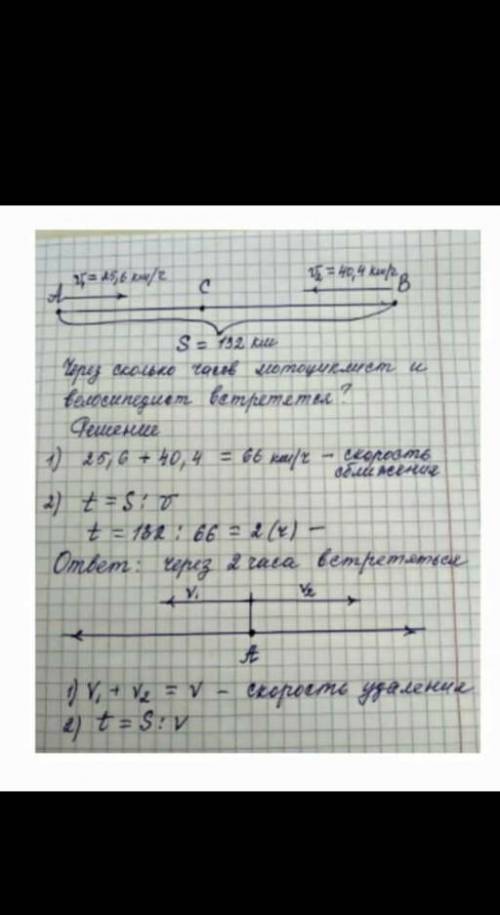 v₁ = 25,6 км/ч
v₂ = 40,4 км/ч
A
C
B
S = 132 км
Через сколько часов мотоциклист и
велосипедист встретется?
Решение
1) 25,6 + 40,4 = 66 км/ч – скорость
сближения
2) t = S : v
t = 132 : 66 = 2 (ч) –
Ответ: через 2 часа встретяться
v₁
v₂
A
1) v₁ + v₂ = v – скорость удаления
2) t = S : v